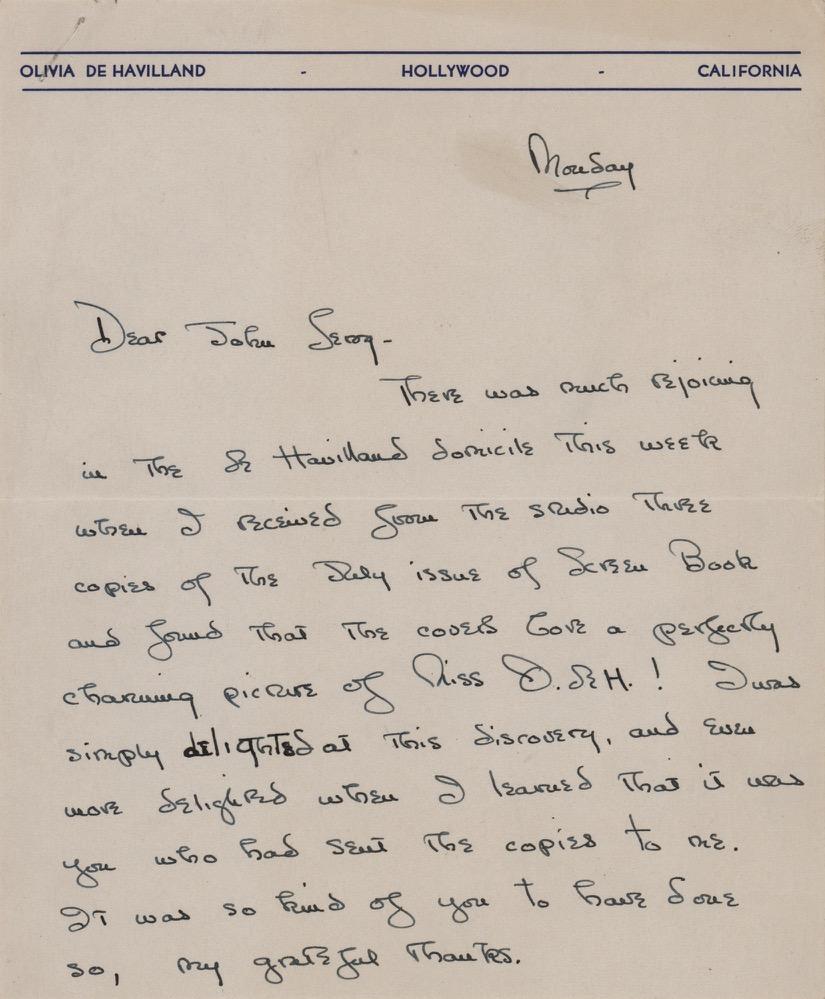 OLIVIA DE HAVILLAND - HOLLYWOOD - CALIFORNIA
Monday
Dear John
There was much rejoicing
in the de Havilland domicile this week
when I received from the studio three
copies of the July issue of Screen Book
and found that the covers bore a perfectly
charming picture of Miss O. de H. ! I was
simply delighted at this discovery, and even
more delighted when I learned that it was
you who had sent the copies to me.
It was so kind of you to have done
so, my grateful thanks.